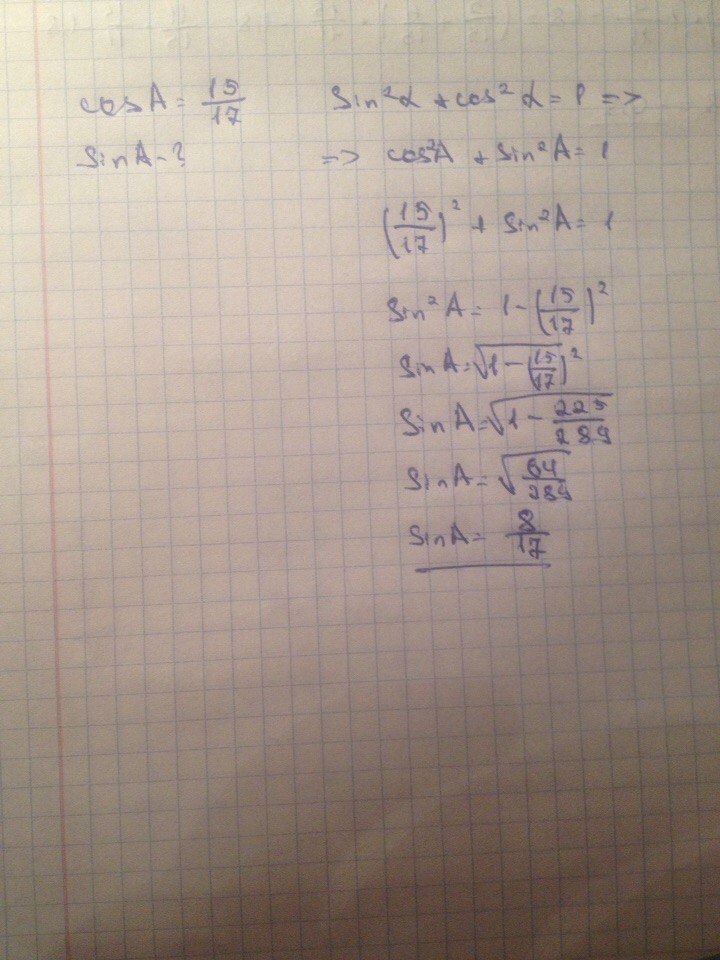 cos A = 15/17
Sin A - ?
Sin²α + cos²α = 1 =>
=> cos²A + Sin²A = 1
(15/17)² + Sin²A = 1
Sin²A = 1 - (15/17)²
Sin A = √1 - (15/17)²
Sin A = √1 - 225/289
Sin A = √64/289
Sin A = 8/17